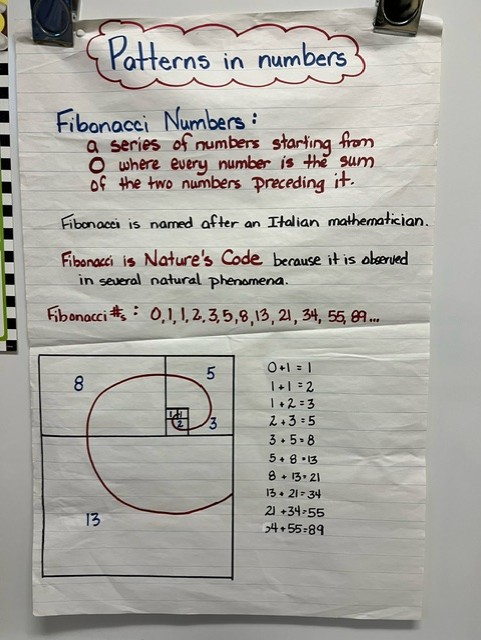 Patterns in numbers
Fibonacci Numbers:
a series of numbers starting from
0 where every number is the sum
of the two numbers preceding it.
Fibonacci is named after an Italian mathematician.
Fibonacci is Nature's Code because it is observed
in several natural phenomena.
Fibonacci #s: 0,1,1,2,3,5,8,13,21,34,55,89...
8
5
1 1
2
3
13
0+1=1
1+1=2
1+2=3
2+3=5
3+5=8
5+8=13
8+13=21
13+21=34
21+34=55
34+55=89